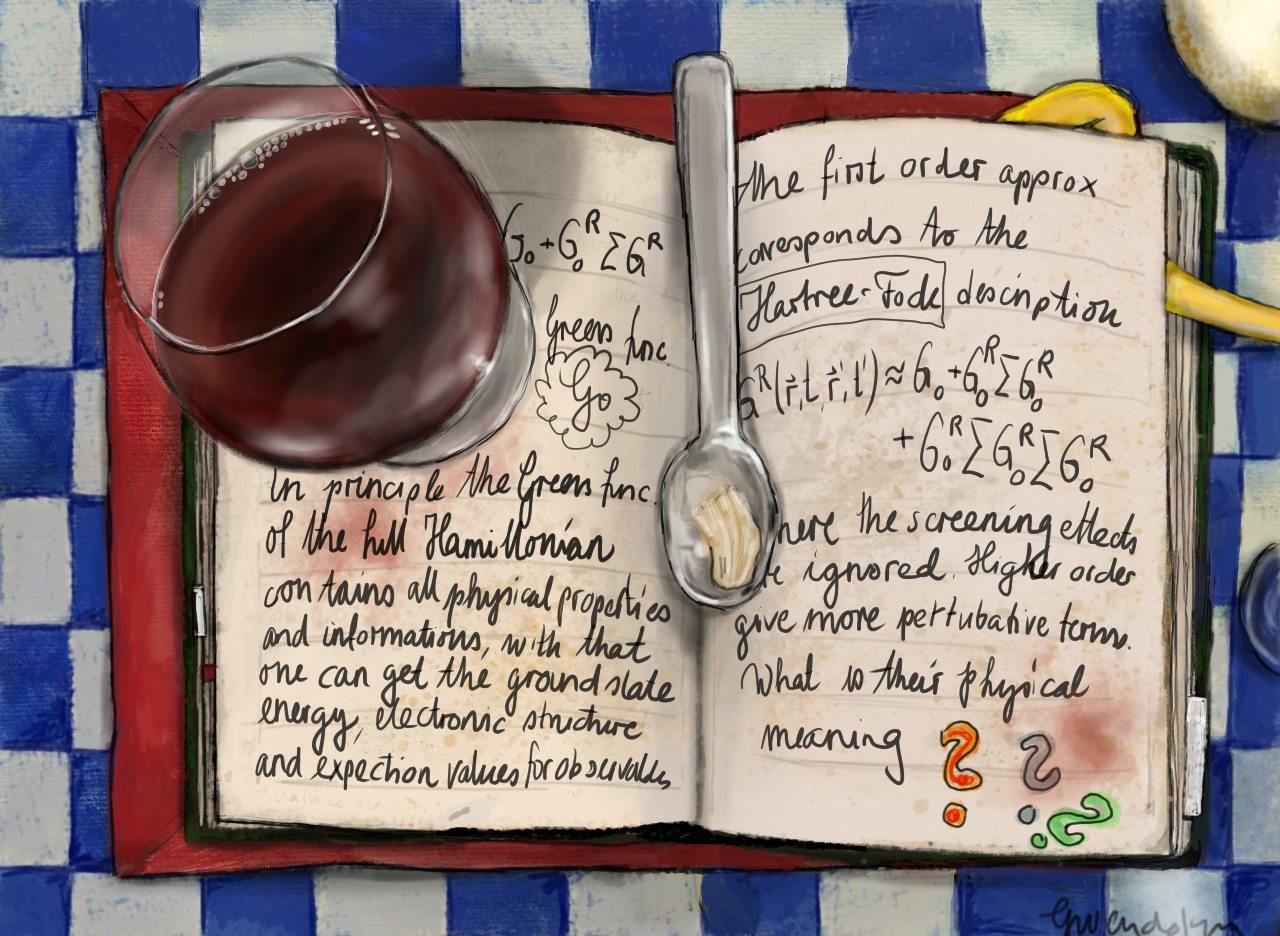 G₀ + G₀ᴿ Σ Gᴿ
Greens func.
G₀
In principle the Greens func.
of the full Hamiltonian
contains all physical properties
and informations, with that
one can get the ground state
energy, electronic structure
and expection values for observables
the first order approx
corresponds to the
Hartree-Fock description
Gᴿ(r⃗,t,r⃗',t') ≈ G₀ + G₀ᴿ Σ G₀ᴿ
+ G₀ᴿ Σ G₀ᴿ Σ G₀ᴿ
here the screening effects
ignored. Higher order
give more pertubative terms.
What is their physical
meaning ? ? ?
Gwendolyn